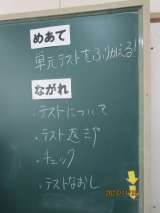 めあて
単元テストをふりかえる!
ながれ
・テストについて
・テスト返きゃく
・チェック
・テストなおし